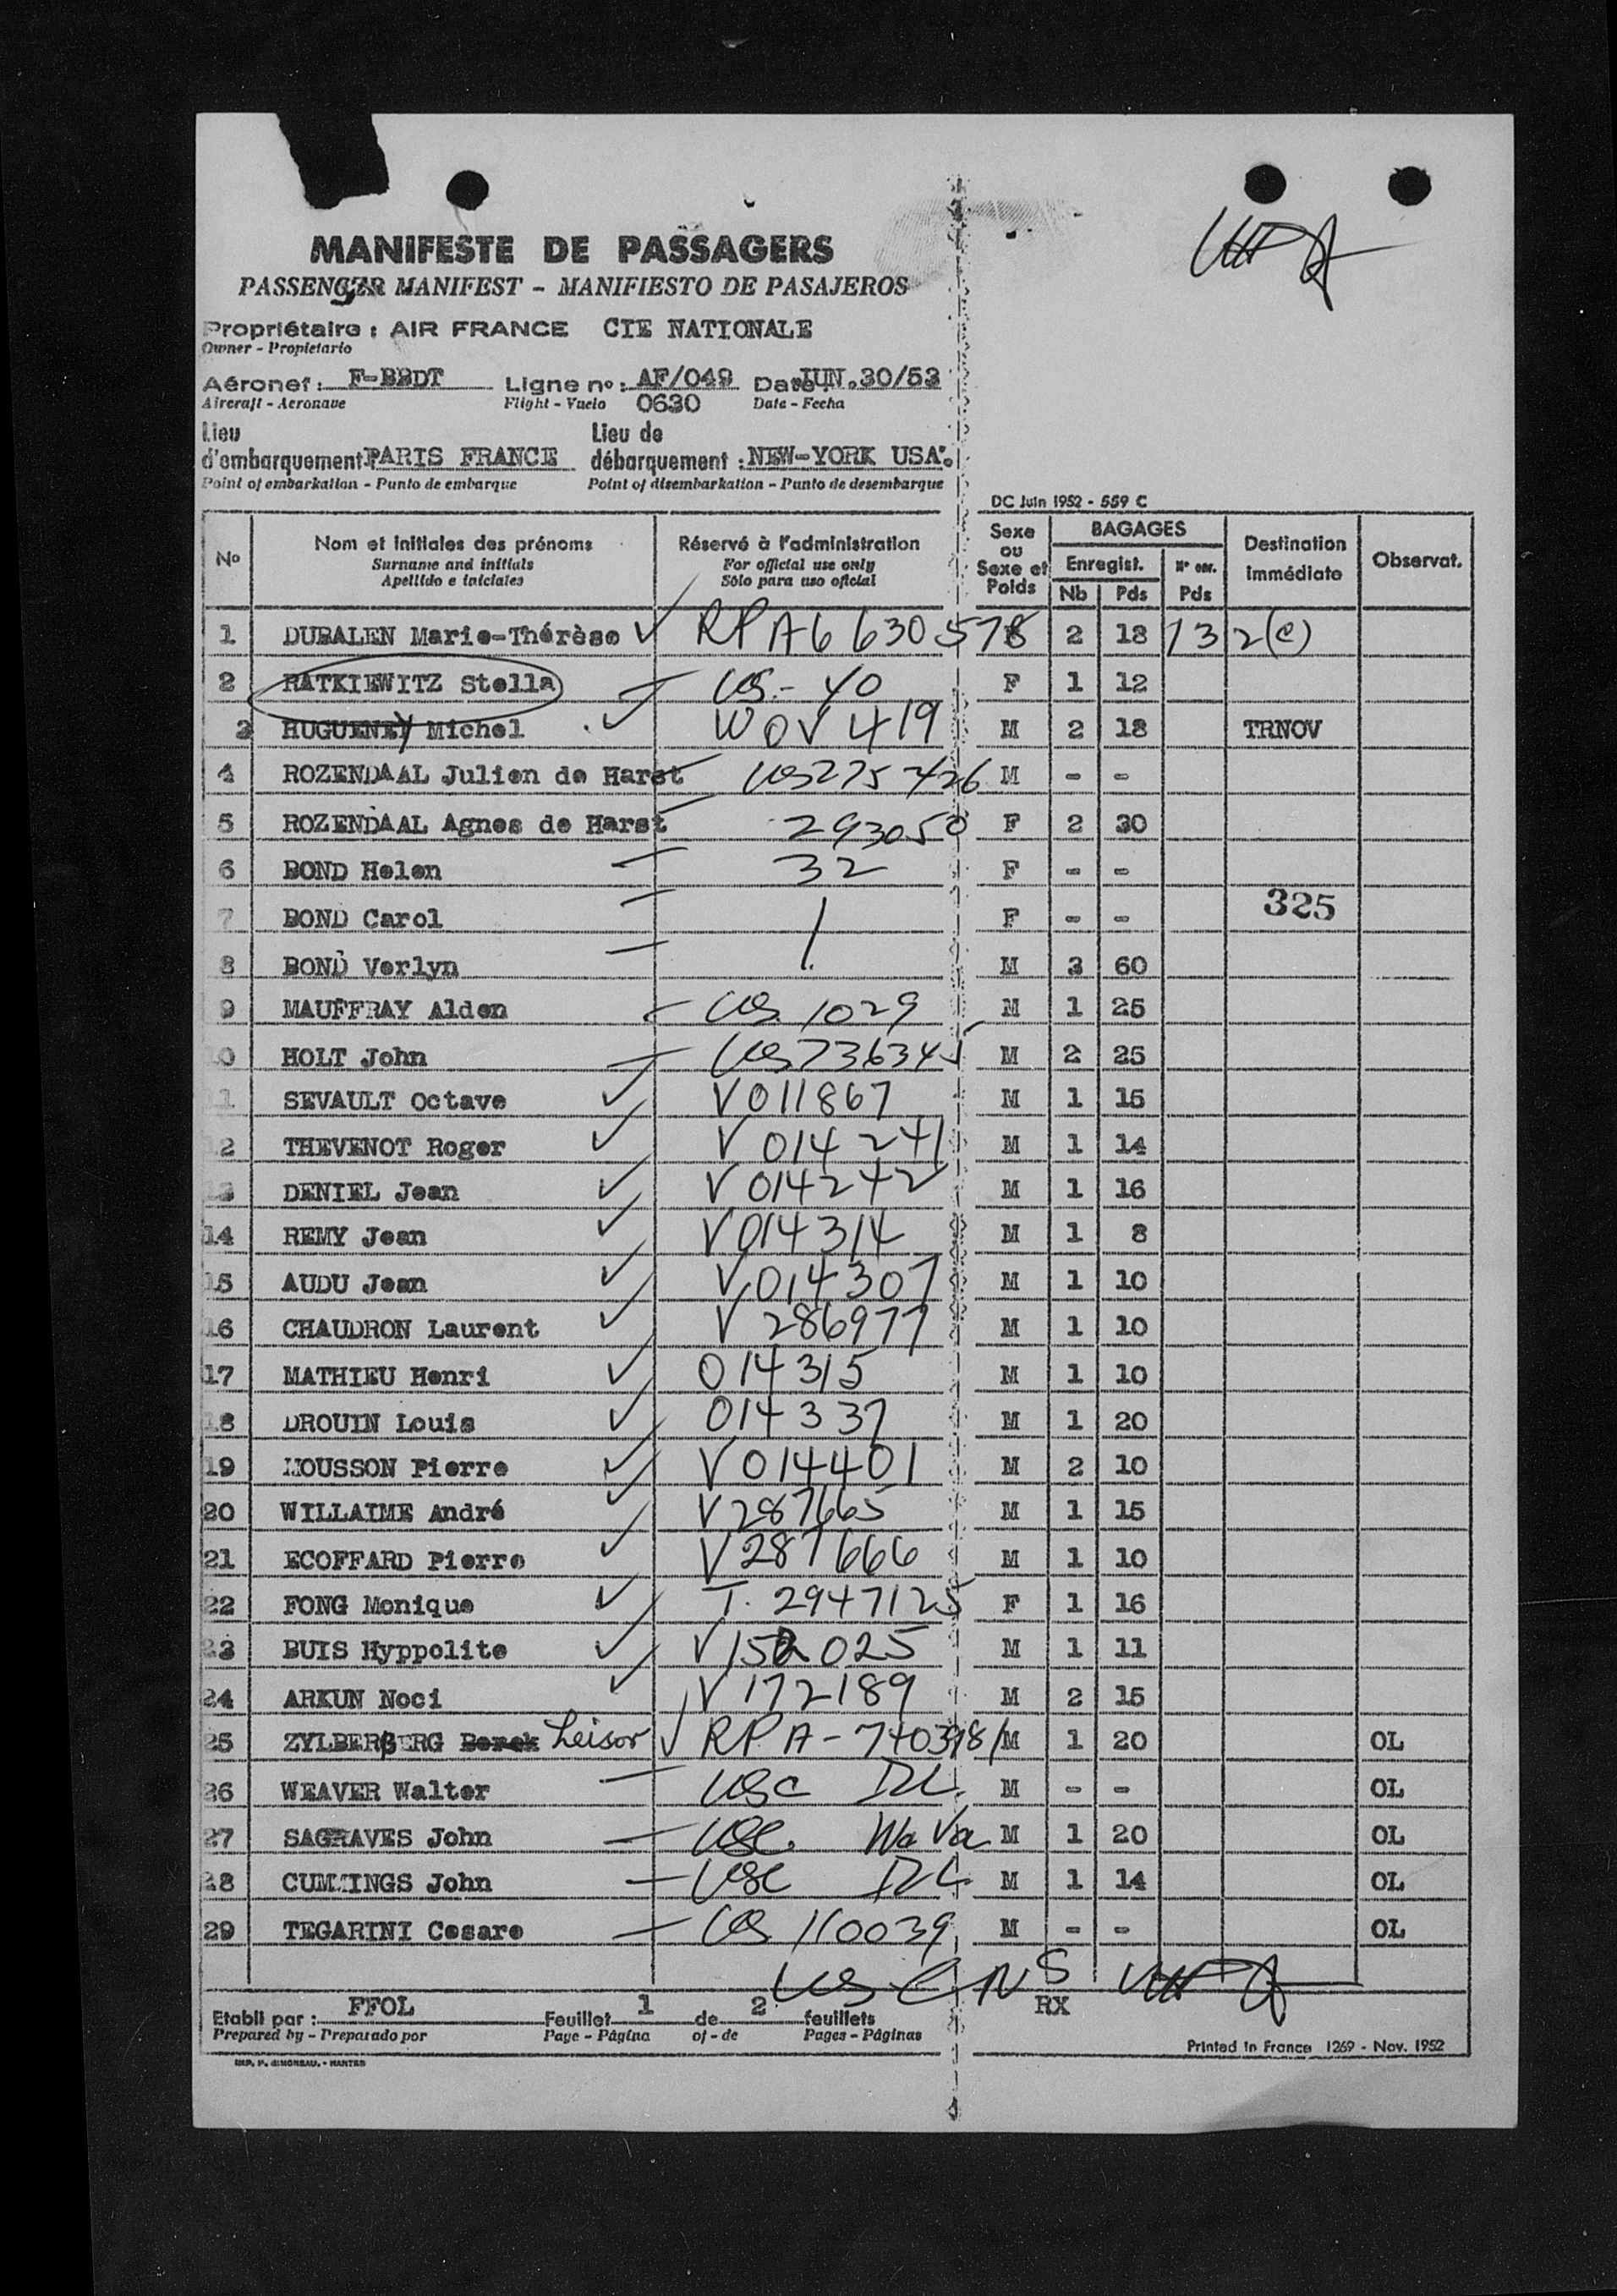 MANIFESTE DE PASSAGERS
PASSENGER MANIFEST - MANIFIESTO DE PASAJEROS
Propriétaire : AIR FRANCE CIE NATIONALE
Owner - Propietario
Aéronef : F-BBDT Ligne nº : AF/049 Date JUN.30/53
Aircraft - Aeronave Flight - Vuelo 0630 Date - Fecha
Lieu d'embarquement : PARIS FRANCE Lieu de débarquement : NEW-YORK USA.
Point of embarkation - Punto de embarque Point of disembarkation - Punto de desembarque
DC Juin 1952 - 559 C
Nº Nom et initiales des prénoms Réservé à l'administration Sexe ou Sexe et Poids BAGAGES Destination immédiate Observat.
Surname and initials For official use only Enregist. Nº enr.
Apellido e iniciales Sólo para uso oficial Nb Pds Pds
1 DUBALEN Marie-Thérèse RPA6 630578 2 18 132(e)
2 RATKIEWITZ Stella US.- 40 F 1 12
3 HUGUENEY Michel WOV 419 M 2 18 TRNOV
4 ROZENDAAL Julien de Harst US275426 M - -
5 ROZENDAAL Agnes de Harst 293050 F 2 30
6 BOND Helen 32 F - -
7 BOND Carol F - - 325
8 BOND Verlyn M 3 60
9 MAUFFRAY Alden US 1029 M 1 25
10 HOLT John US736345 M 2 25
11 SEVAULT Octave V011867 M 1 15
12 THEVENOT Roger V 014241 M 1 14
13 DENIEL Jean V 014242 M 1 16
14 REMY Jean V014314 M 1 8
15 AUDU Jean V014307 M 1 10
16 CHAUDRON Laurent V 286977 M 1 10
17 MATHIEU Henri 014315 M 1 10
18 DROUIN Louis 014337 M 1 20
19 MOUSSON Pierre V014401 M 2 10
20 WILLAIME André V287665 M 1 15
21 ECOFFARD Pierre V287666 M 1 10
22 FONG Monique T. 2947125 F 1 16
23 BUIS Hyppolite V152025 M 1 11
24 ARKUN Noci V172189 M 2 15
25 ZYLBERBERG Berek Leisor RPA-740398 M 1 20 OL
26 WEAVER Walter USC DC M - - OL
27 SAGRAVES John USC Wa Va M 1 20 OL
28 CUMMINGS John USC DC M 1 14 OL
29 TEGARINI Cesare US 110039 M - - OL
Etabli par : FFOL Feuillet 1 de 2 feuillets RX
Prepared by - Preparado por Page - Página of - de Pages - Páginas
Printed in France 1269 - Nov. 1952